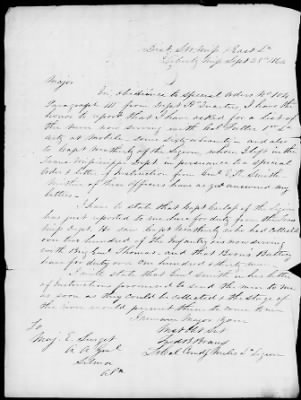 Dist S.W. Miss & East La
Liberty Miss Sept 25" 1864
Major
In obedience to Special Orders No
Paragraph III from Dept Hd Quarters, I have the
honor to report that I have asked for a list of
the men now serving with Col 1st La
Arty at Mobile some sixty and also
to Capt of the Legion, who is in the
Trans Mississippi Dept in pursuance to a Special
Order & letter of Instruction from Genl E. K. Smith
Neither of these officers have as yet answered my
letters.
I have to state that Capt of the Legion
has just reported to me here for duty from the Trans
Miss Dept. He saw Capt who had collected
over two hundred of the Infantry now serving
with Brig Genl Thomas, and that Battery
have for duty over one hundred & thirty men
I will state that Genl Smith in his letter
of Instructions promised to send the men to me
as soon as they could be collected & the stage of
the river would permit them to come to me
I remain Major Your
Most Obt Servt
Fred N Ogden
Lt Col Comdg Miles La Legion
To
Maj. E. Surget
A. A. Genl
Selma
Ala